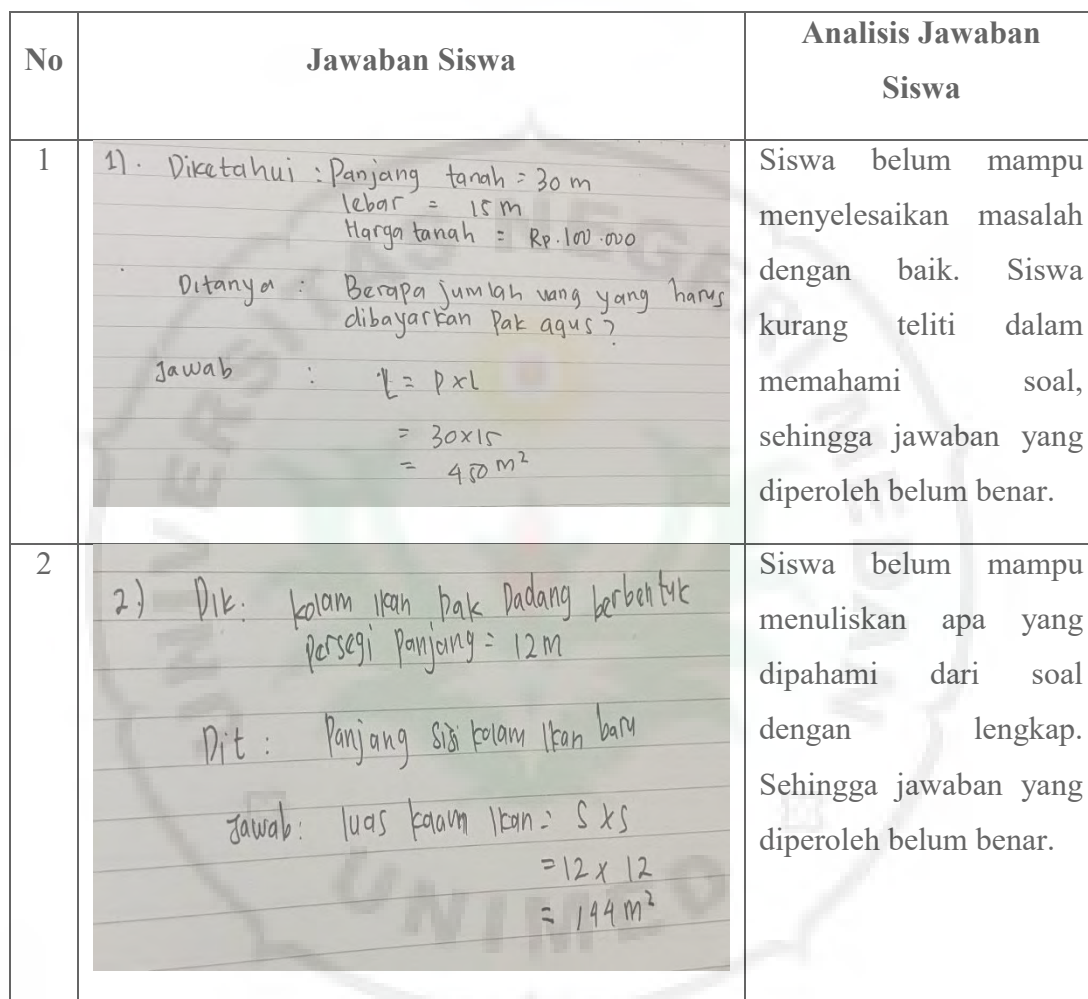 No
Jawaban Siswa
Analisis Jawaban
Siswa
1
1). Diketahui : Panjang tanah = 30 m
lebar = 15 m
Harga tanah = Rp. 100.000
Ditanya : Berapa jumlah uang yang harus
dibayarkan Pak agus?
Jawab : L = P x L
= 30 x 15
= 450 m²
Siswa belum mampu
menyelesaikan masalah
dengan baik. Siswa
kurang teliti dalam
memahami soal,
sehingga jawaban yang
diperoleh belum benar.
2
2.) Dik: kolam ikan pak Dadang berbentuk
persegi Panjang = 12 m
Dit : Panjang sisi kolam ikan baru
Jawab: luas ikan = S x S
= 12 x 12
= 144 m²
Siswa belum mampu
menuliskan apa yang
dipahami dari soal
dengan lengkap.
Sehingga jawaban yang
diperoleh belum benar.
UNIVERSITAS NEGERI MEDAN
UNIMED